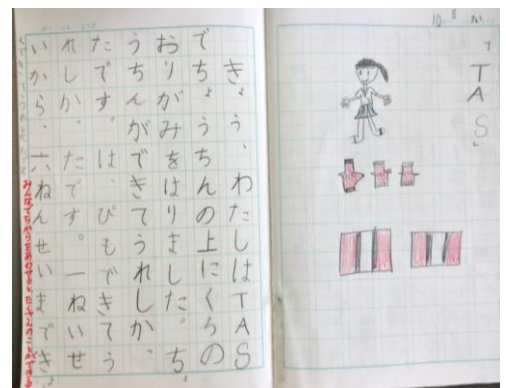 10 8 か
TAS
きょう、わたしはTAS
でちょうちんの上にくろの
おりがみをはりました。ちょ
うちんができてうれしか、
たです。は、ぴもできてう
れしか、たです。一ねいせ
いから、六ねんせいまでき